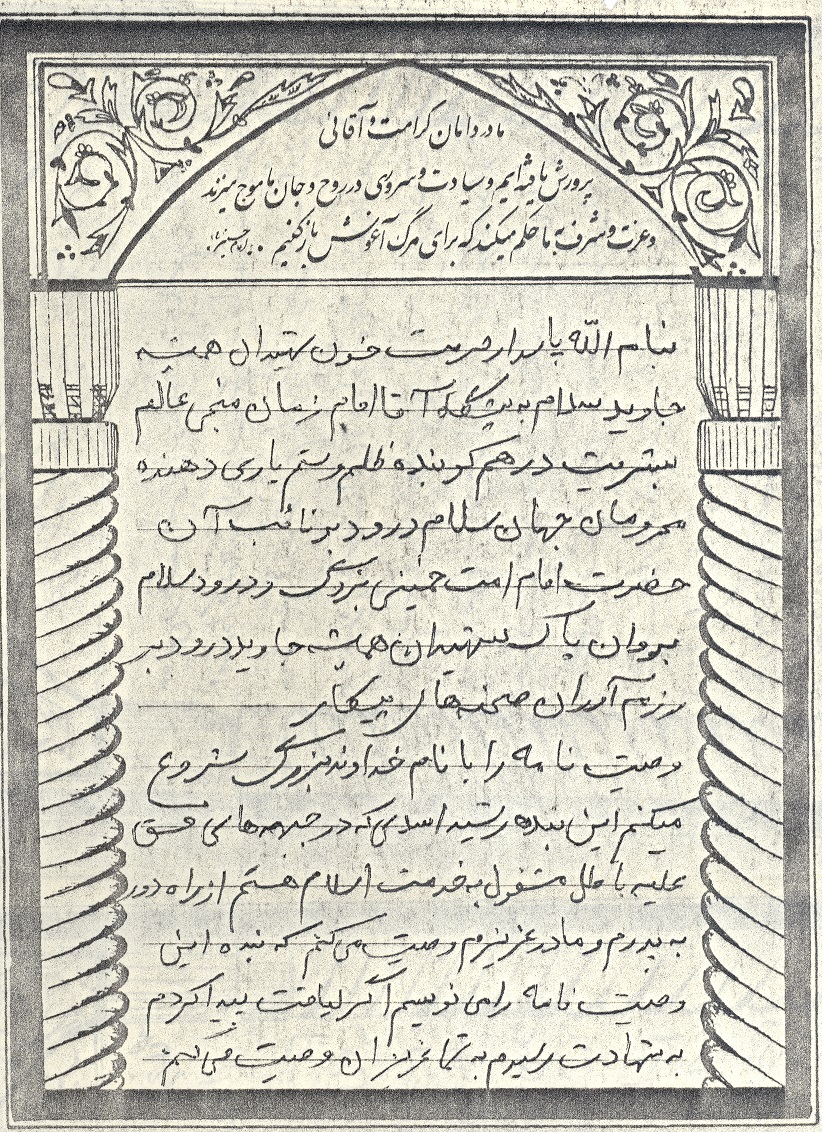 ما در دامان کرامت و آقائی
پرورش یافته‌ایم و سیادت و سروری در روح و جان ما موج میزند
و عزت و شرف به ما حکم میکند که برای مرگ آغوش باز کنیم .
بنام الله پاسدار حرمت خون شهیدان همیشه
جاوید سلام به پیشگاه آقا امام زمان منجی عالم
بشریت در هم کوبنده ظلم و ستم یاری دهنده
محرومان جهان سلام درود بر نائب آن
حضرت امام امت خمینی بزرگ و درود سلام
بروان پاک شهیدان همیشه جاوید درود بر
رزم آوران صحنه‌های پیکار
وصیت نامه را با نام خداوند بزرگ شروع
میکنم این بنده رشید اسدی که در جبهه‌های حق
علیه باطل مشغول به خدمت اسلام هستم از راه دور
به پدرم و مادر عزیزم وصیت می کنم که بنده این
وصیت نامه را می نویسم اگر لیاقت پیدا کردم
به شهادت رسیدم به شما عزیزان وصیت می کنم